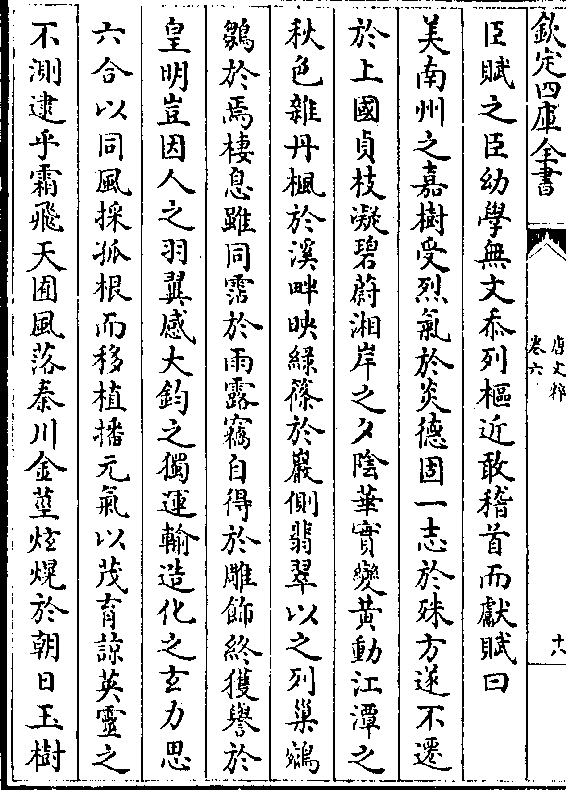 欽定四庫全書
唐文粹
卷六
十八
臣賦之臣幼學無文忝列樞近敢稽首而獻賦曰
美南州之嘉樹受烈氣於炎德固一志於殊方遂不遷
於上國貞枝凝碧蔚湘岸之夕陰華實變黃動江潭之
秋色雜丹楓於溪畔映綠篠於巖側翡翠以之列巢鵷
鶵於焉棲息雖同霑於雨露竊自得於雕飾終獲譽於
皇明豈因人之羽翼感大鈞之獨運輸造化之玄力思
六合以同風採孤根而移植播元氣以茂育諒英靈之
不測逮乎霜飛天囿風落秦川金莖炫熀於朝日玉樹